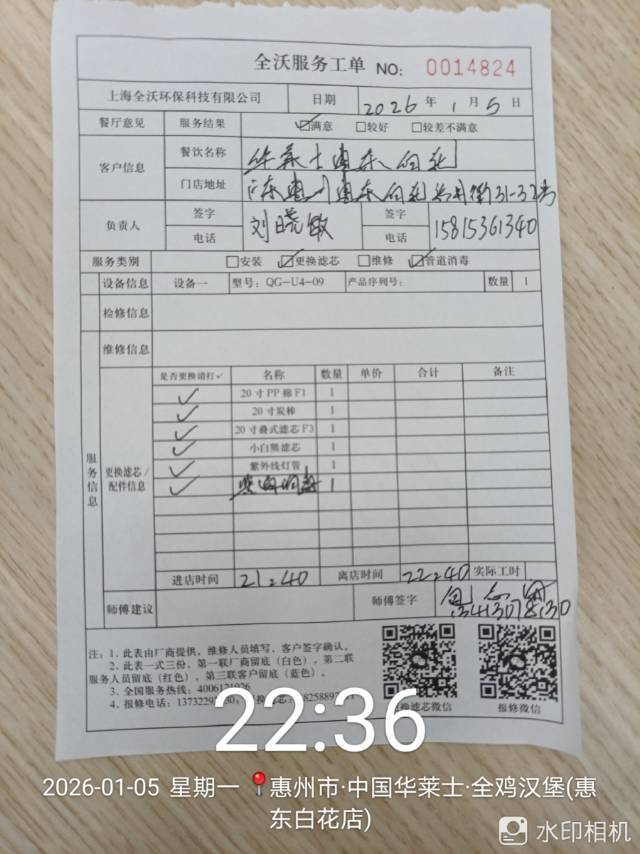 全沃服务工单 NO: 0014824
上海全沃环保科技有限公司 日期 2026年1月5日
餐厅意见 服务结果 ☑满意 ☐较好 ☐较差不满意
客户信息 餐饮名称 华莱士惠东白花
门店地址 广东惠州惠东白花 街31-32号
负责人 签字 刘晓敏 签字
电话 电话 15815361340
服务类别 ☐安装 ☑更换滤芯 ☐维修 ☑管道消毒
设备信息 设备一 型号: QG-U4-09 产品序列号: 数量 1
检修信息
维修信息
服务信息 更换滤芯/配件信息 是否更换请打✓ 名称 数量 单价 合计 备注
✓ 20寸PP棉F1 1
✓ 20寸炭棒 1
✓ 20寸叠式滤芯F3 1
✓ 小白熊滤芯 1
✓ 紫外线灯管 1
✓ 1
进店时间 21:40 离店时间 22:40 实际工时
师傅建议 师傅签字
注: 1. 此表由厂商提供, 维修人员填写, 客户签字确认。
2. 此表一式三份, 第一联厂商留底(白色), 第二联
服务人员留底(红色), 第三联客户留底(蓝色)。
3. 全国服务热线:
4. 报修电话:
滤芯微信 报修微信
22:36
2026-01-05 星期一 📍惠州市·中国华莱士·全鸡汉堡(惠
东白花店)
水印相机